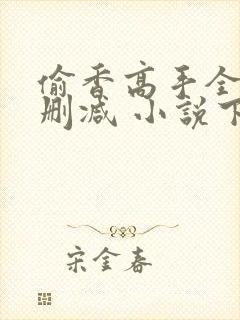 偷香高手全
删减 小説下
宋金春